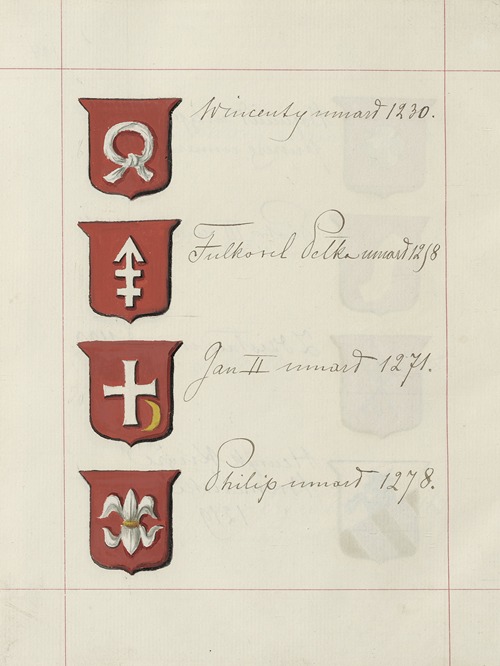 Wincenty umarł 1230.
Fulko vel Pełka umarł 1258
Jan II umarł 1271.
Philip umarł 1278.